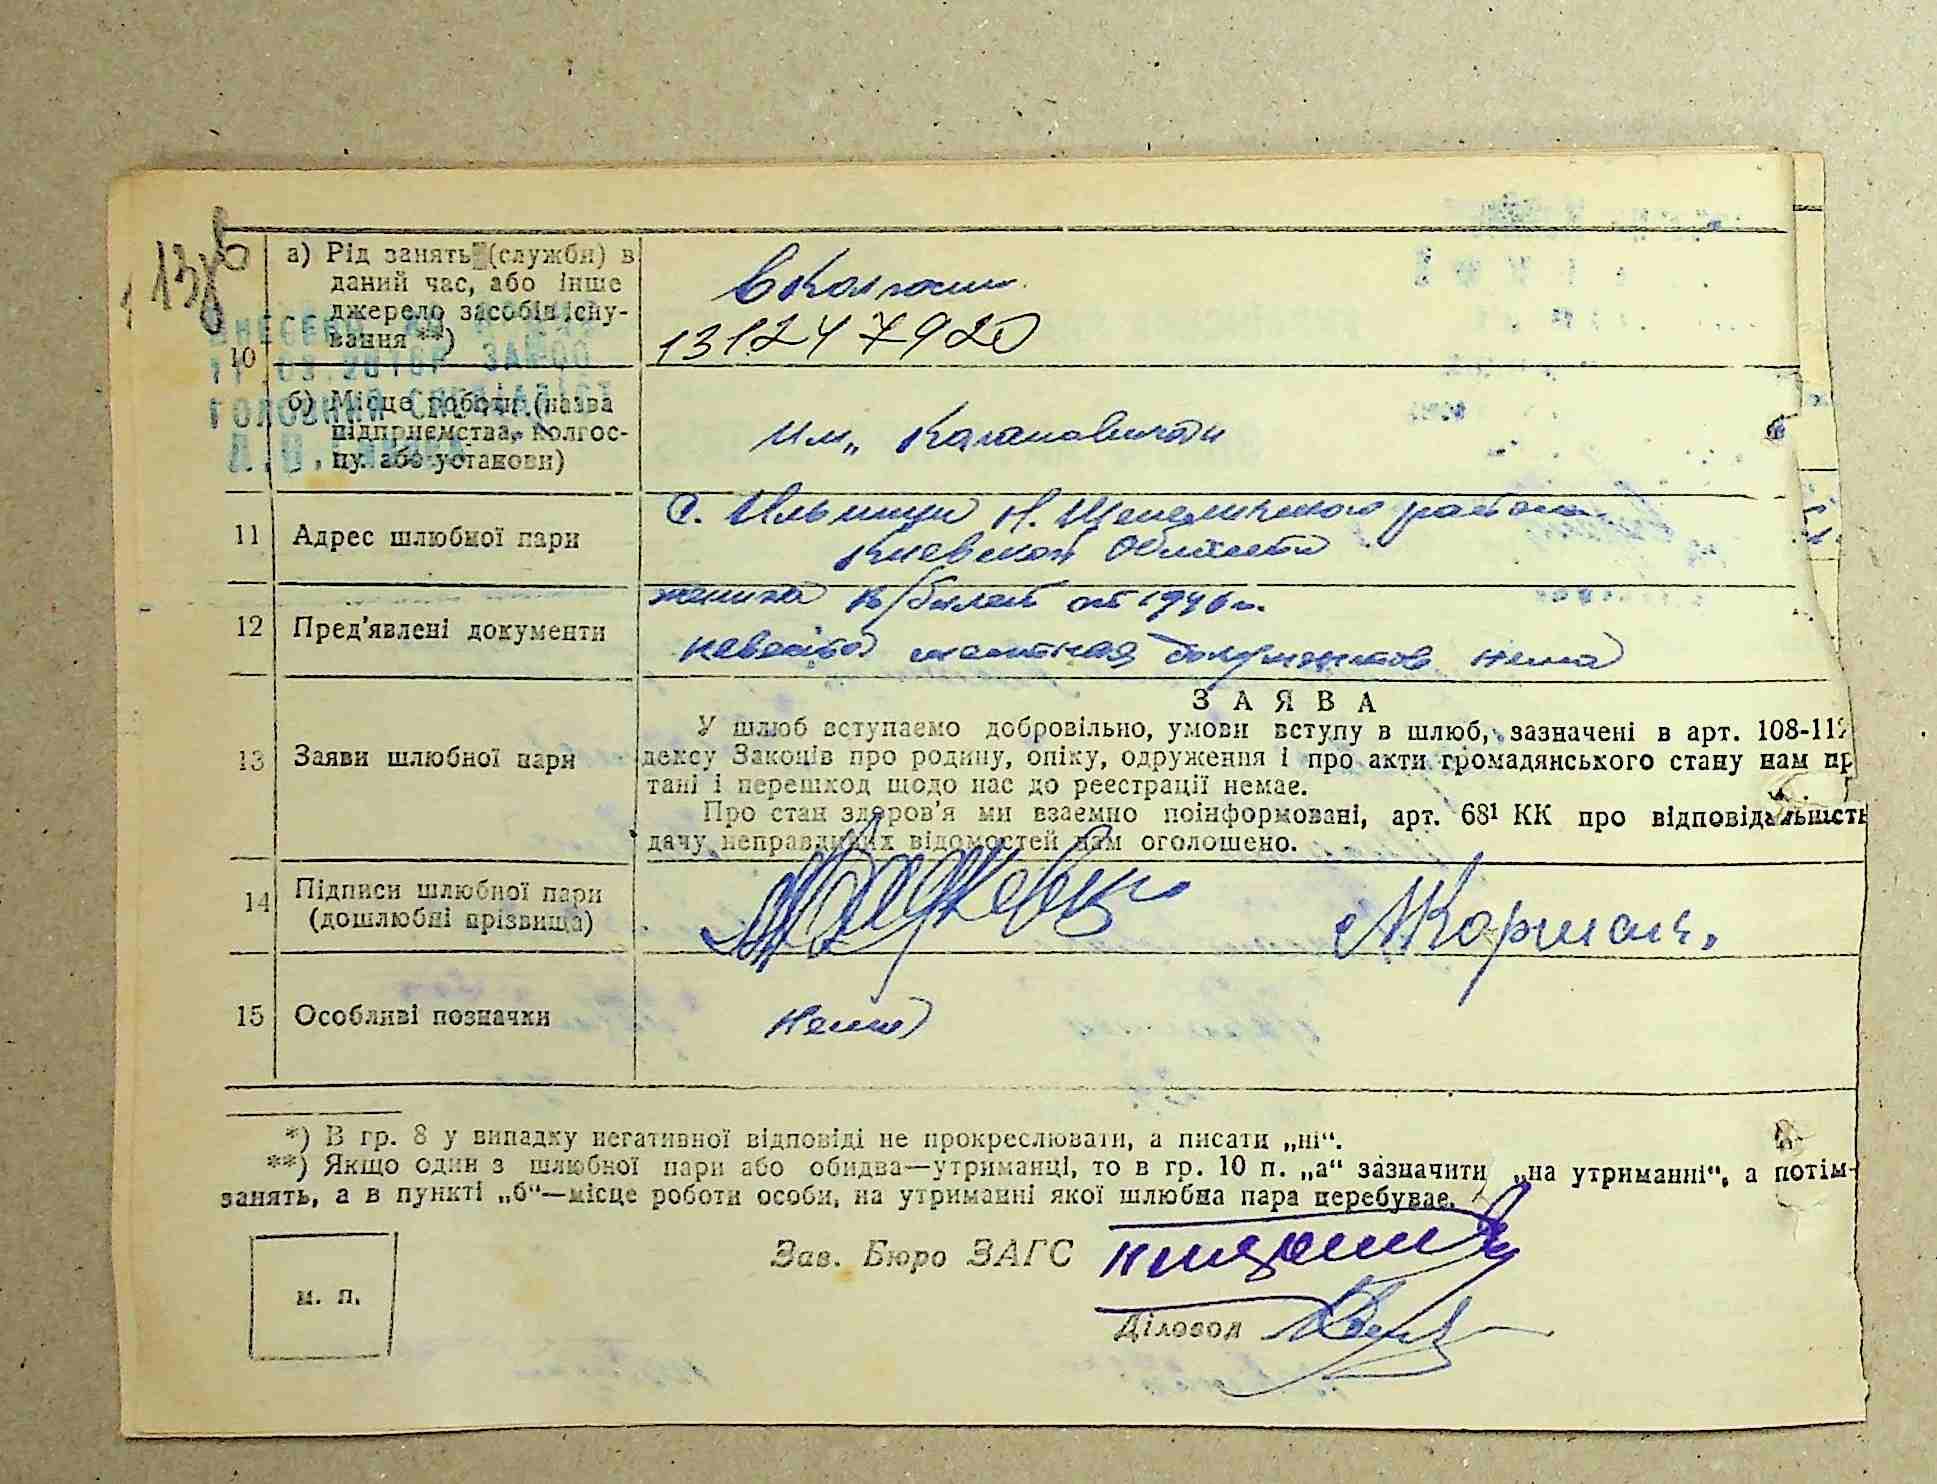 138
а) Рід занять (служби) в
даний час, або інше
джерело засобів існу-
вання **)
в Колгоспи
131247920
ВНЕСЕНО
ЗАМОО
10
ГОЛОВНИЙ СПЕЦІАЛІСТ
б) Місце роботи (назва
підприємства, колгос-
пу або установи)
им. Кагановича
11
Адрес шлюбної пари
с. Ильинцы Н. Щепеличского района
Киевской области
12
Пред'явлені документи
жениха В/билет от 1946 г.
невеста документов нет
З А Я В А
13
Заяви шлюбної пари
У шлюб вступаємо добровільно, умови вступу в шлюб, зазначені в арт. 108-112
дексу Законів про родину, опіку, одруження і про акти громадянського стану нам пр
тані і перешкод щодо нас до реєстрації немає.
Про стан здоров'я ми взаємно поінформовані, арт. 68¹ КК про відповідальність
дачу неправдивих відомостей нам оголошено.
14
Підписи шлюбної пари
(дошлюбні прізвища)
15
Особливі позначки
нет
*) В гр. 8 у випадку негативної відповіді не прокреслювати, а писати „ні“.
**) Якщо один з шлюбної пари або обидва—утриманці, то в гр. 10 п. „а“ зазначити „на утриманні“, а потім
занять, а в пункті „б“—місце роботи особи, на утриманні якої шлюбна пара перебуває.
Зав. Бюро ЗАГС
м. п.
Діловод